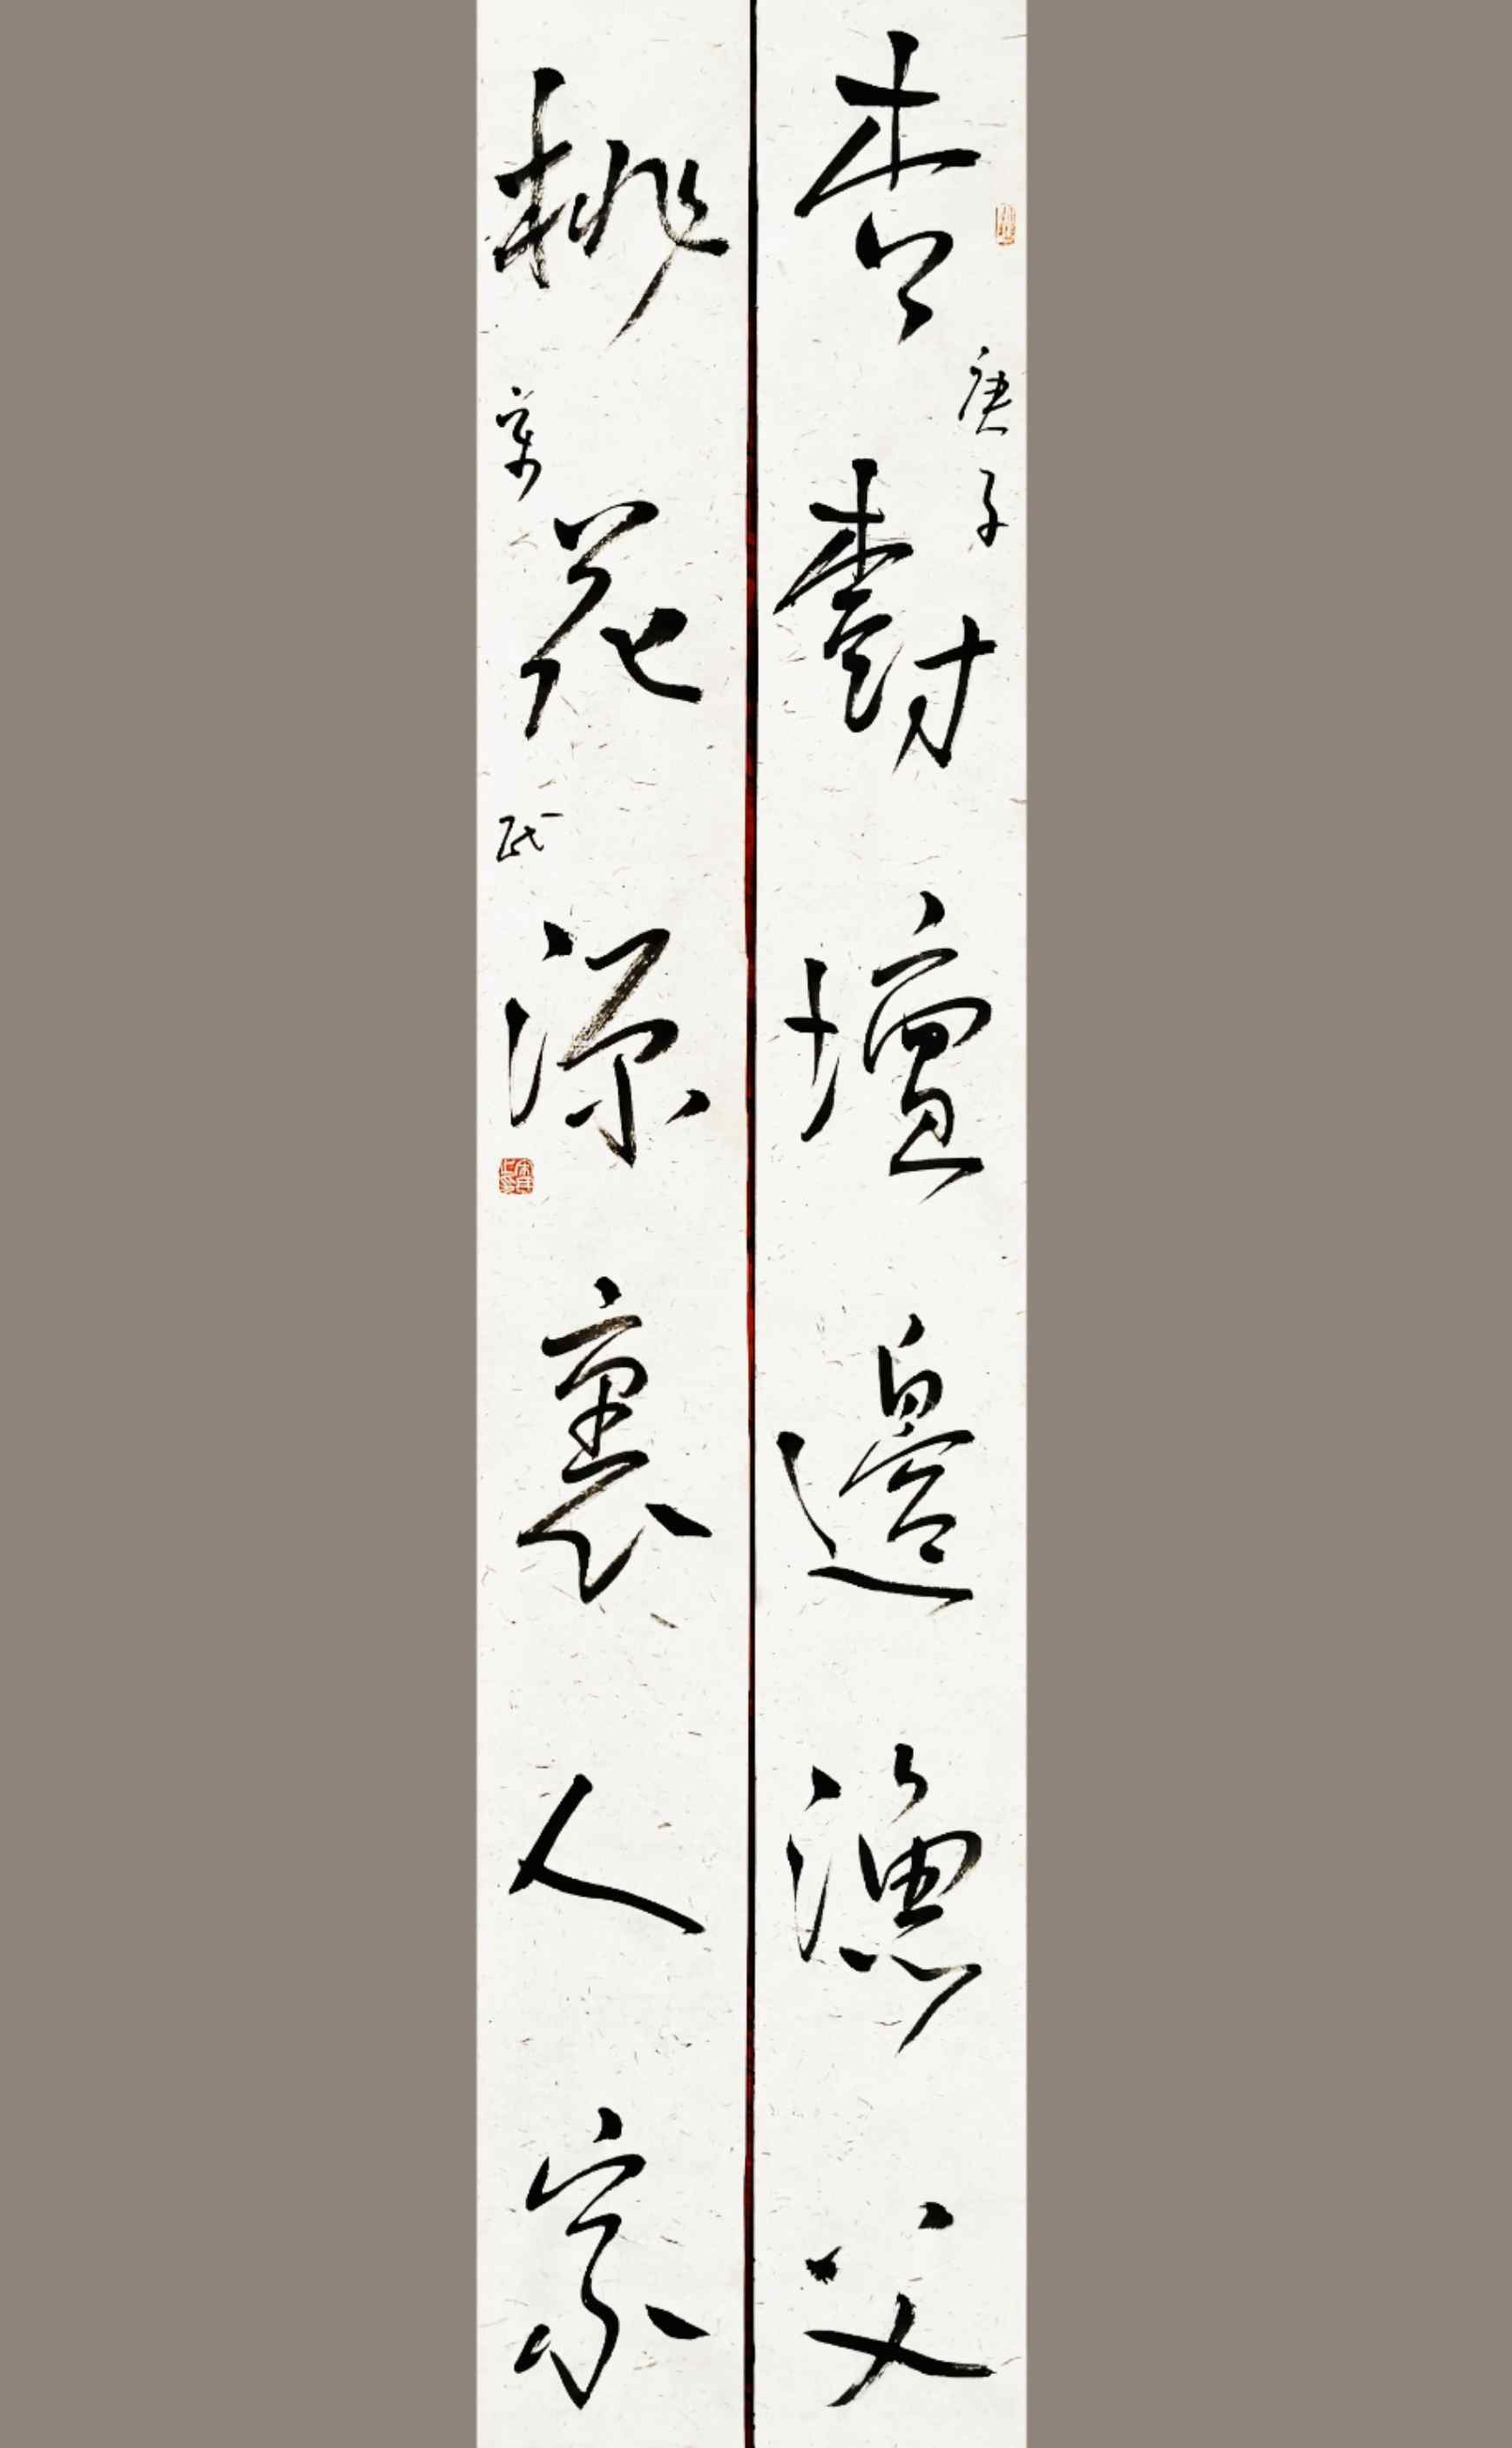 杏樹壇邊漁父
桃花源裏人家
庚子
宋民